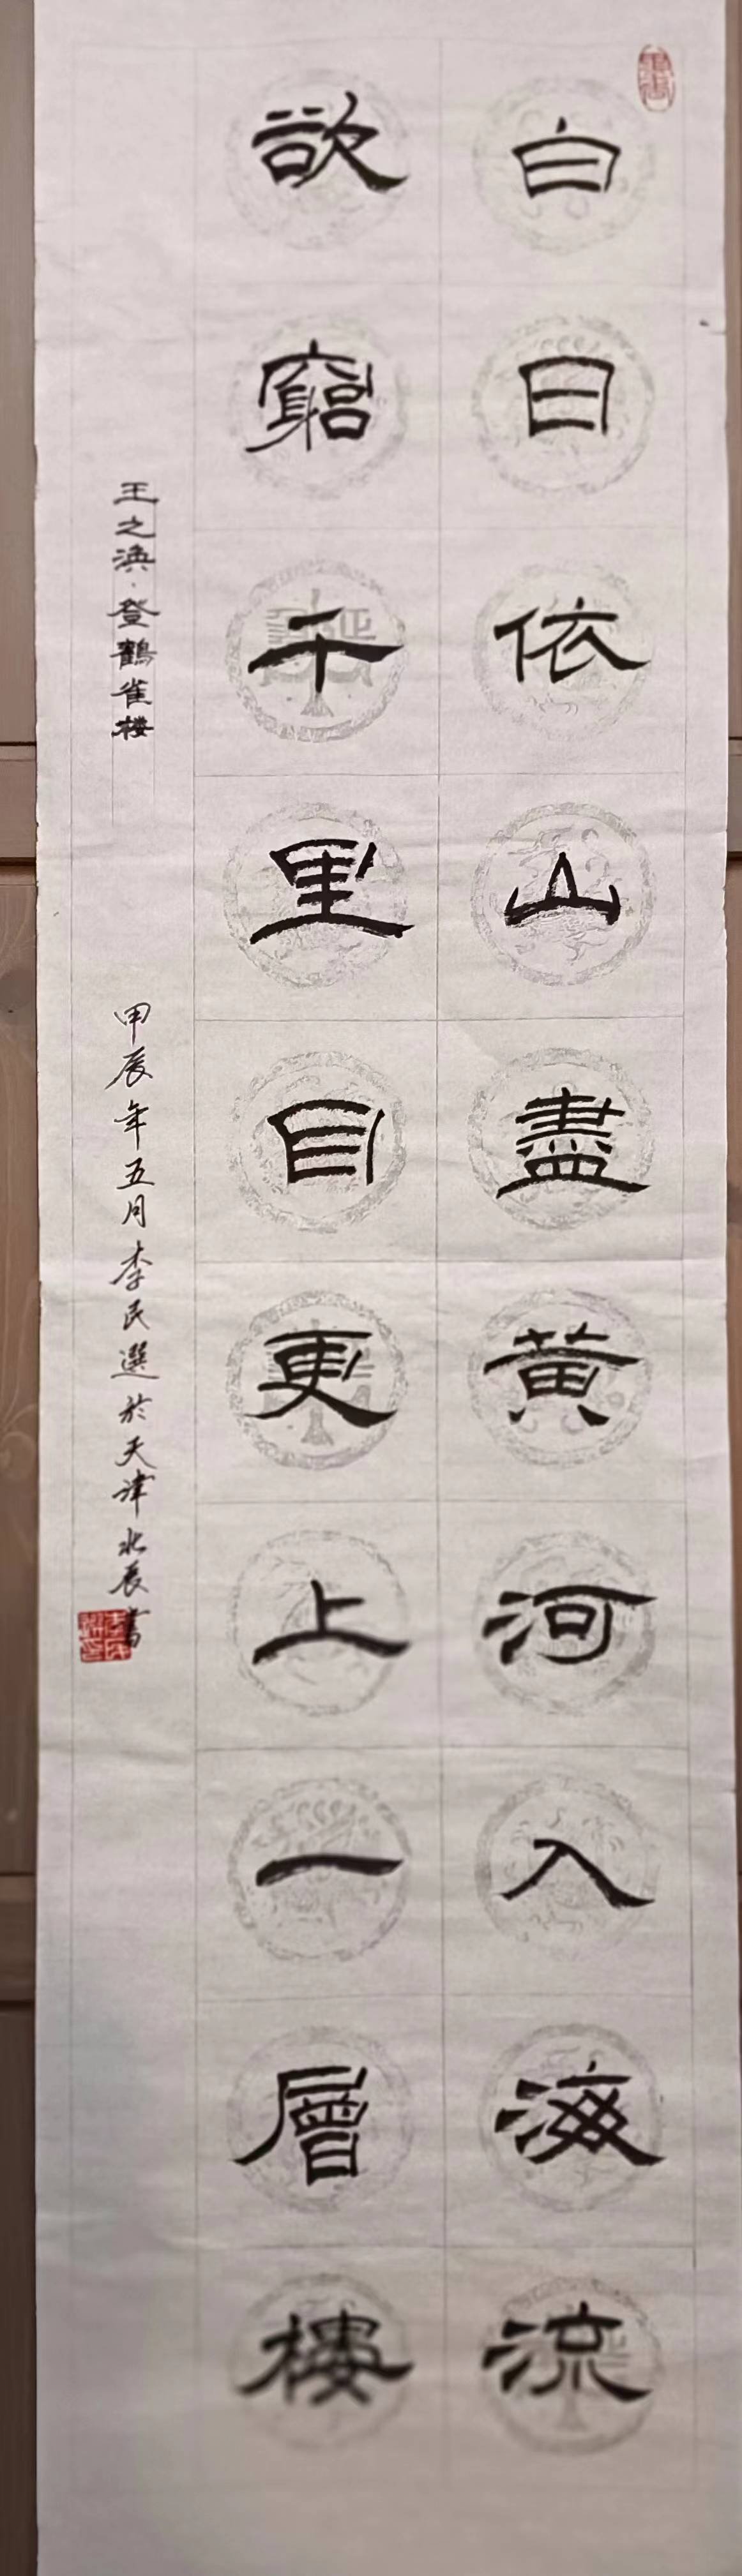 白日依山盡黃河入海流
欲窮千里目更上一層樓
王之渙·登鶴雀楼
甲辰年五月李民選於天津北辰書